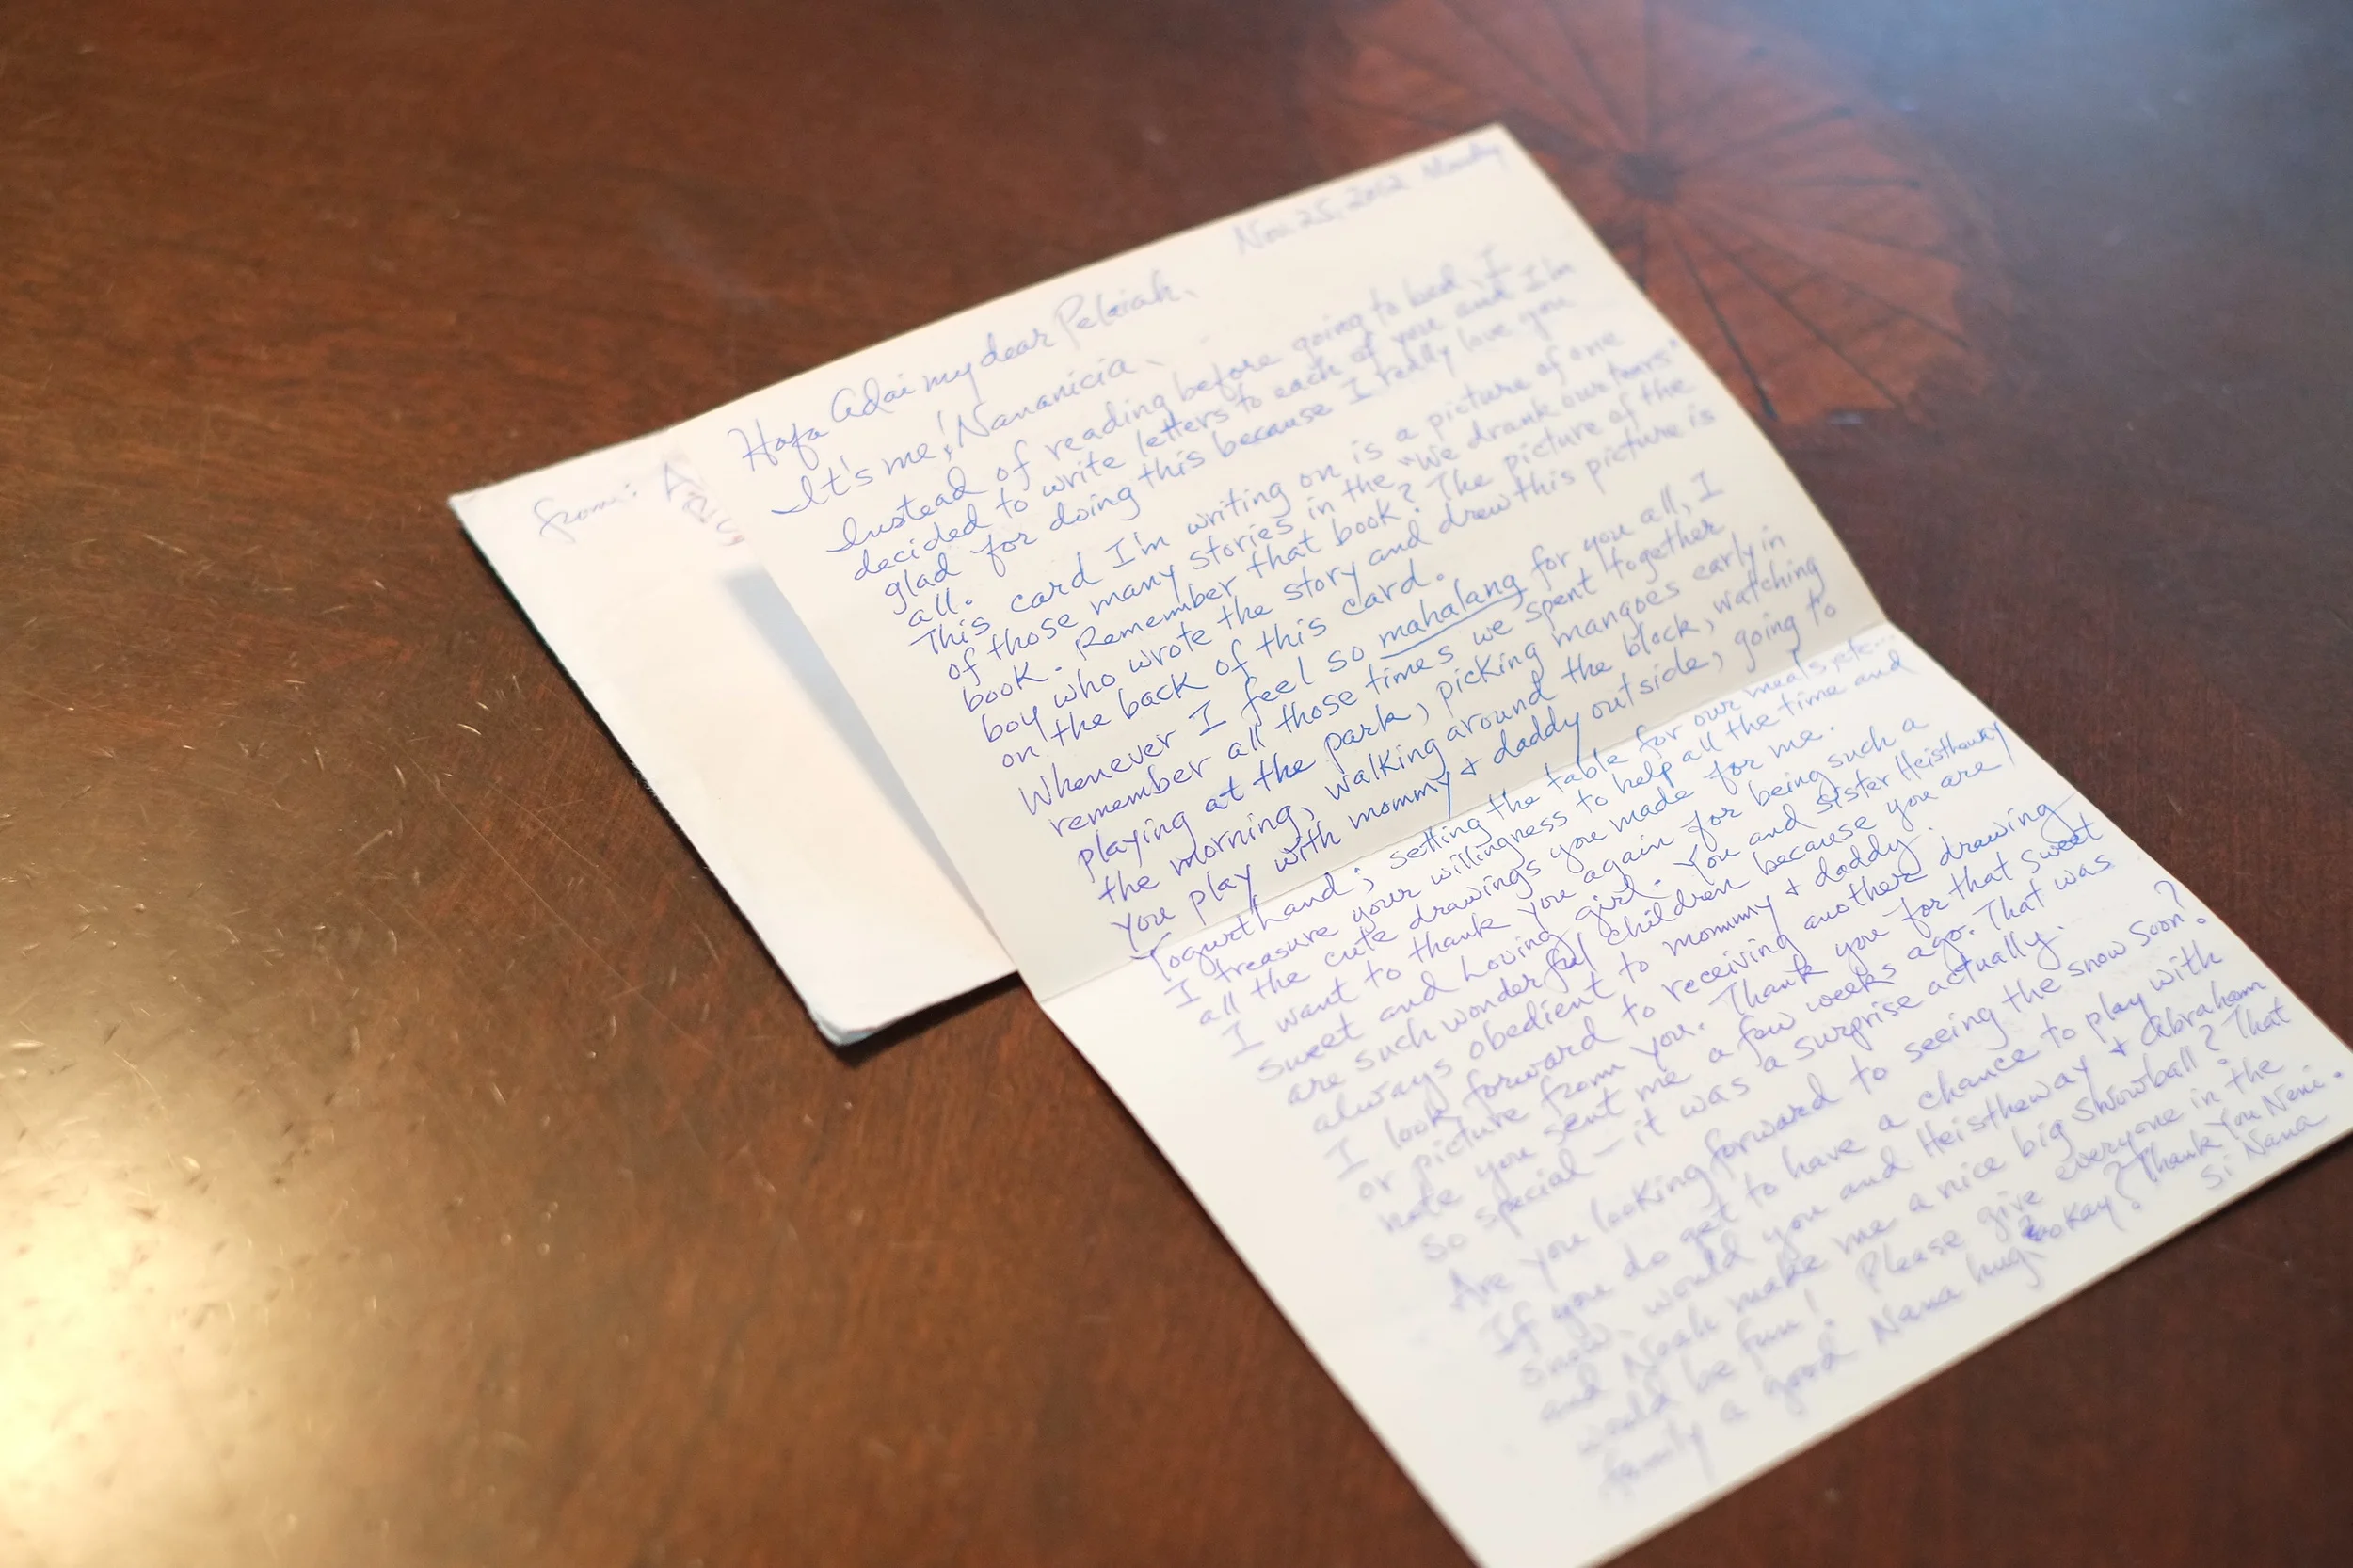 Nov. 25, 2012
Hafa Adai my dear Pelaiah,
It's me! Nananicia.
Instead of reading before going to bed, I
decided to write letters to each of you and I'm
glad for doing this because I really love you
all.
This card I'm writing on is a picture of one
of those many stories in the "We drank our tears"
book. Remember that book? The picture of the
boy who wrote the story and drew this picture is
on the back of this card.
Whenever I feel so mahalang for you all, I
remember all those times we spent together
playing at the park, picking mangoes early in
the morning, walking around the block, watching
you play with mommy & daddy outside, going to
Yogurtland; setting the table for our meals, etc...
I treasure your willingness to help all the time and
all the cute drawings you made for me.
I want to thank you again for being such a
sweet and loving girl. You and sister Heistheway
are such wonderful children because you are
always obedient to mommy & daddy.
I look forward to receiving another drawing
or picture from you. Thank you for that sweet
note you sent me a few weeks ago. That was
so special - it was a surprise actually.
Are you looking forward to seeing the snow soon?
If you do get to have a chance to play with
snow, would you and Heistheway & Abraham
and Noah make me a nice big snowball? That
would be fun! Please give everyone in the
family a good Nana hug, okay? Thank you Neni.
Si Nana
From: A